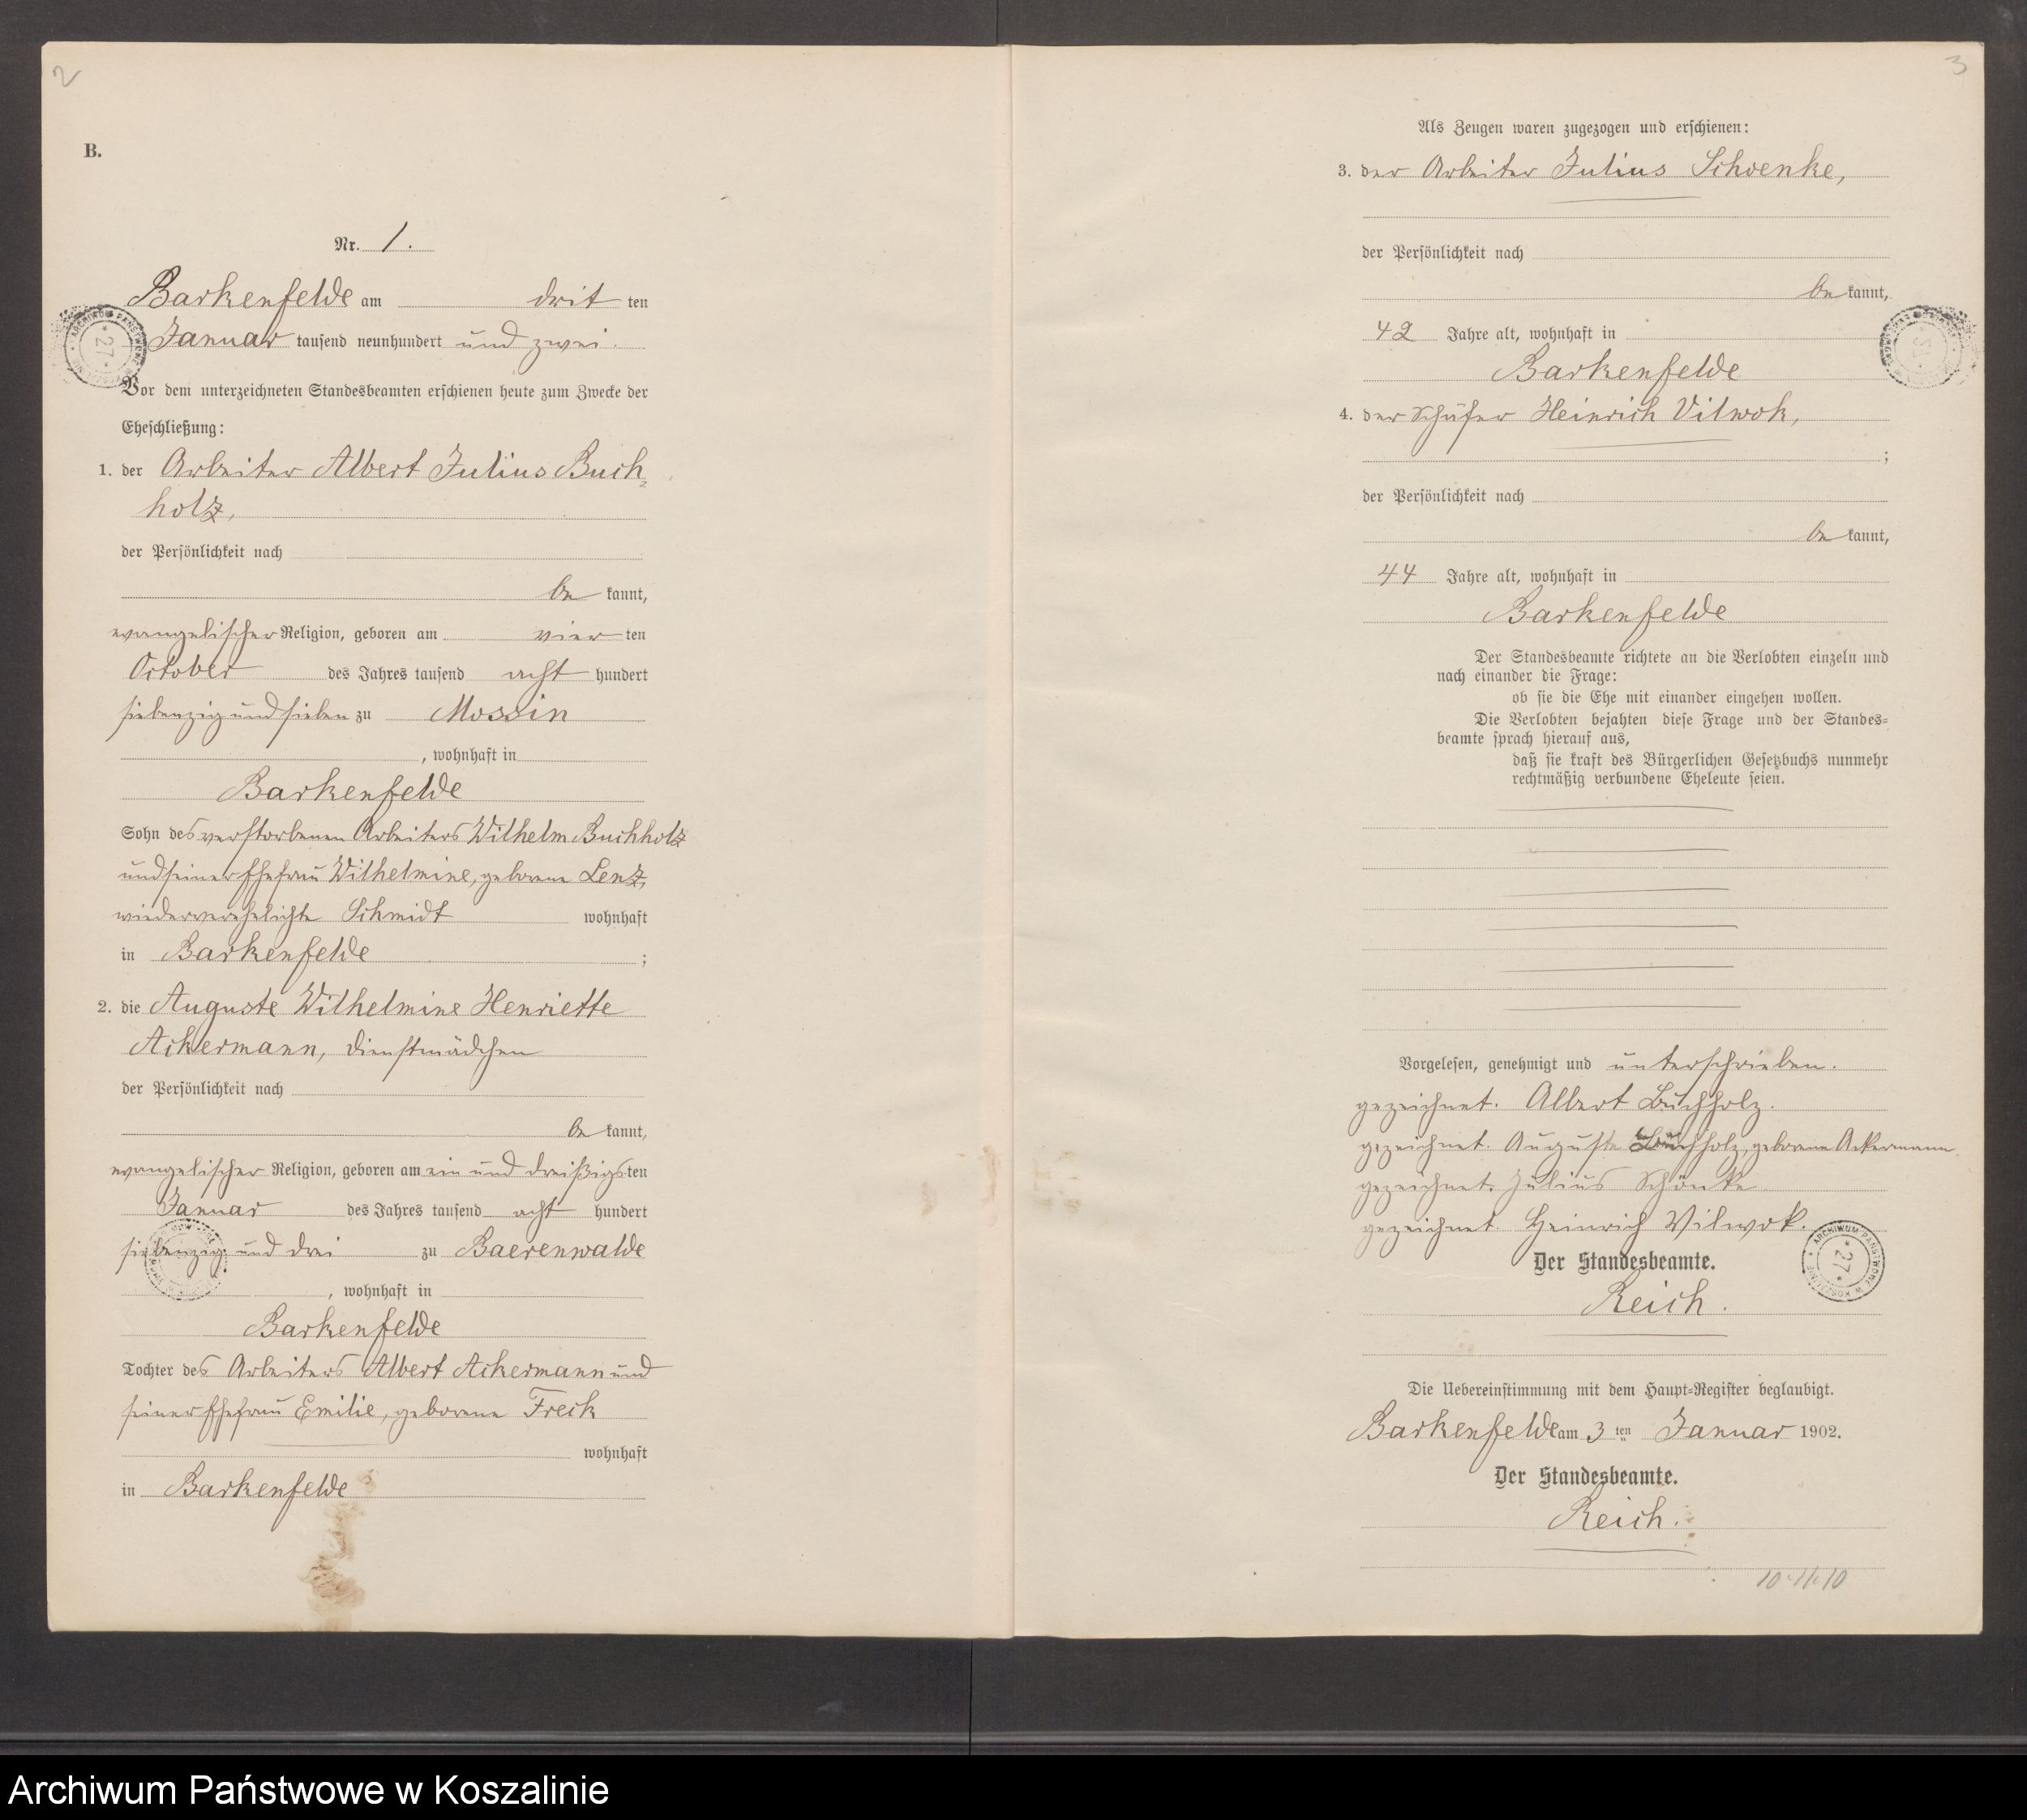 2
B.
Nr. 1.
Barkenfelde am dritten
Januar tausend neunhundert und zwei.
Vor dem unterzeichneten Standesbeamten erschienen heute zum Zwecke der
Eheschließung:
1. der Arbeiter Albert Julius Buch-
holz,
der Persönlichkeit nach
be kannt,
evangelischer Religion, geboren am vier ten
October des Jahres tausend acht hundert
siebenzig und sieben zu Mossin
, wohnhaft in
Barkenfelde
Sohn des verstorbenen Arbeiters Wilhelm Buchholz
und seiner Ehefrau Wilhelmine, geborene Lenz,
wiederverehelichte Schmidt wohnhaft
in Barkenfelde ;
2. die Auguste Wilhelmine Henriette
Ackermann, Dienstmädchen
der Persönlichkeit nach
be kannt,
evangelischer Religion, geboren am ein und dreißigsten
Januar des Jahres tausend acht hundert
siebenzig und drei zu Baerenwalde
, wohnhaft in
Barkenfelde
Tochter des Arbeiters Albert Ackermann und
seiner Ehefrau Emilie, geborene Freck
wohnhaft
in Barkenfelde
3
Als Zeugen waren zugezogen und erschienen:
3. der Arbeiter Julius Schoenke,
der Persönlichkeit nach
be kannt,
42 Jahre alt, wohnhaft in
Barkenfelde
4. der Schäfer Heinrich Vilwok,
;
der Persönlichkeit nach
be kannt,
44 Jahre alt, wohnhaft in
Barkenfelde
Der Standesbeamte richtete an die Verlobten einzeln und
nach einander die Frage:
ob sie die Ehe mit einander eingehen wollen.
Die Verlobten bejahten diese Frage und der Standes-
beamte sprach hierauf aus,
daß sie kraft des Bürgerlichen Gesetzbuchs nunmehr
rechtmäßig verbundene Eheleute seien.
Vorgelesen, genehmigt und unterschrieben.
gezeichnet. Albert Buchholz.
gezeichnet. Auguste Buchholz, geborene Ackermann
gezeichnet. Julius Schönke
gezeichnet Heinrich Vilwok.
Der Standesbeamte.
Reich.
ARCHIWUM PAŃSTWOWE W KOSZALINIE
* 27 *
Die Uebereinstimmung mit dem Haupt-Register beglaubigt.
Barkenfelde am 3ten Januar 1902.
Der Standesbeamte.
Reich.
10.11.10
Archiwum Państwowe w Koszalinie